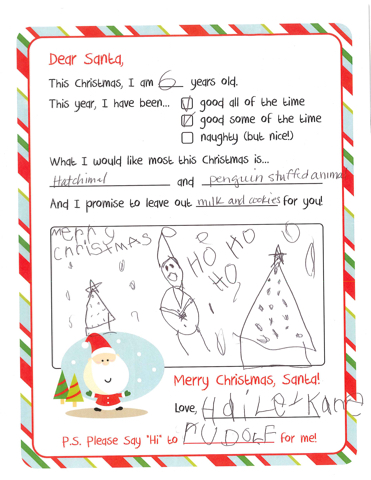 Dear Santa,
This Christmas, I am 6 years old.
This year, I have been... good all of the time
good some of the time
naughty (but nice!)
What I would like most this Christmas is...
Hatchimal and penguin stuffed animal
And I promise to leave out milk and cookies for you!
merry
christmas
HO HO
HO
Merry Christmas, Santa!
Love, Hailey Kane
P.S. Please Say "Hi" to RUDOLF for me!